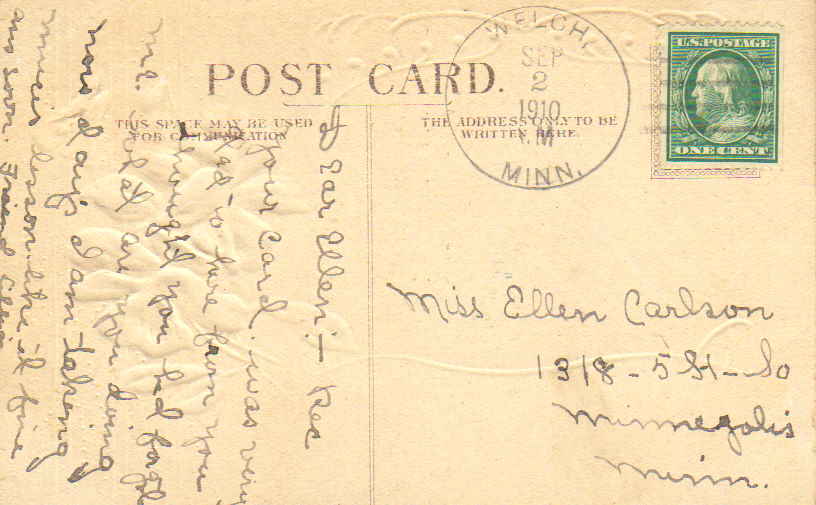 POST CARD.
THIS SPACE MAY BE USED
FOR COMMUNICATION
THE ADDRESS ONLY TO BE
WRITTEN HERE.
WELCH,
SEP
2
1910
MINN.
U.S. POSTAGE
ONE CENT
Dear Ellen:- Rec
your card. was very
glad to have from you
thought you had forgot
me. What are you doing
now days I am taking
music lesson. like it fine
ans soon. Friend
Miss Ellen Carlson
1318-5 St-So
Minneapolis
Minn.